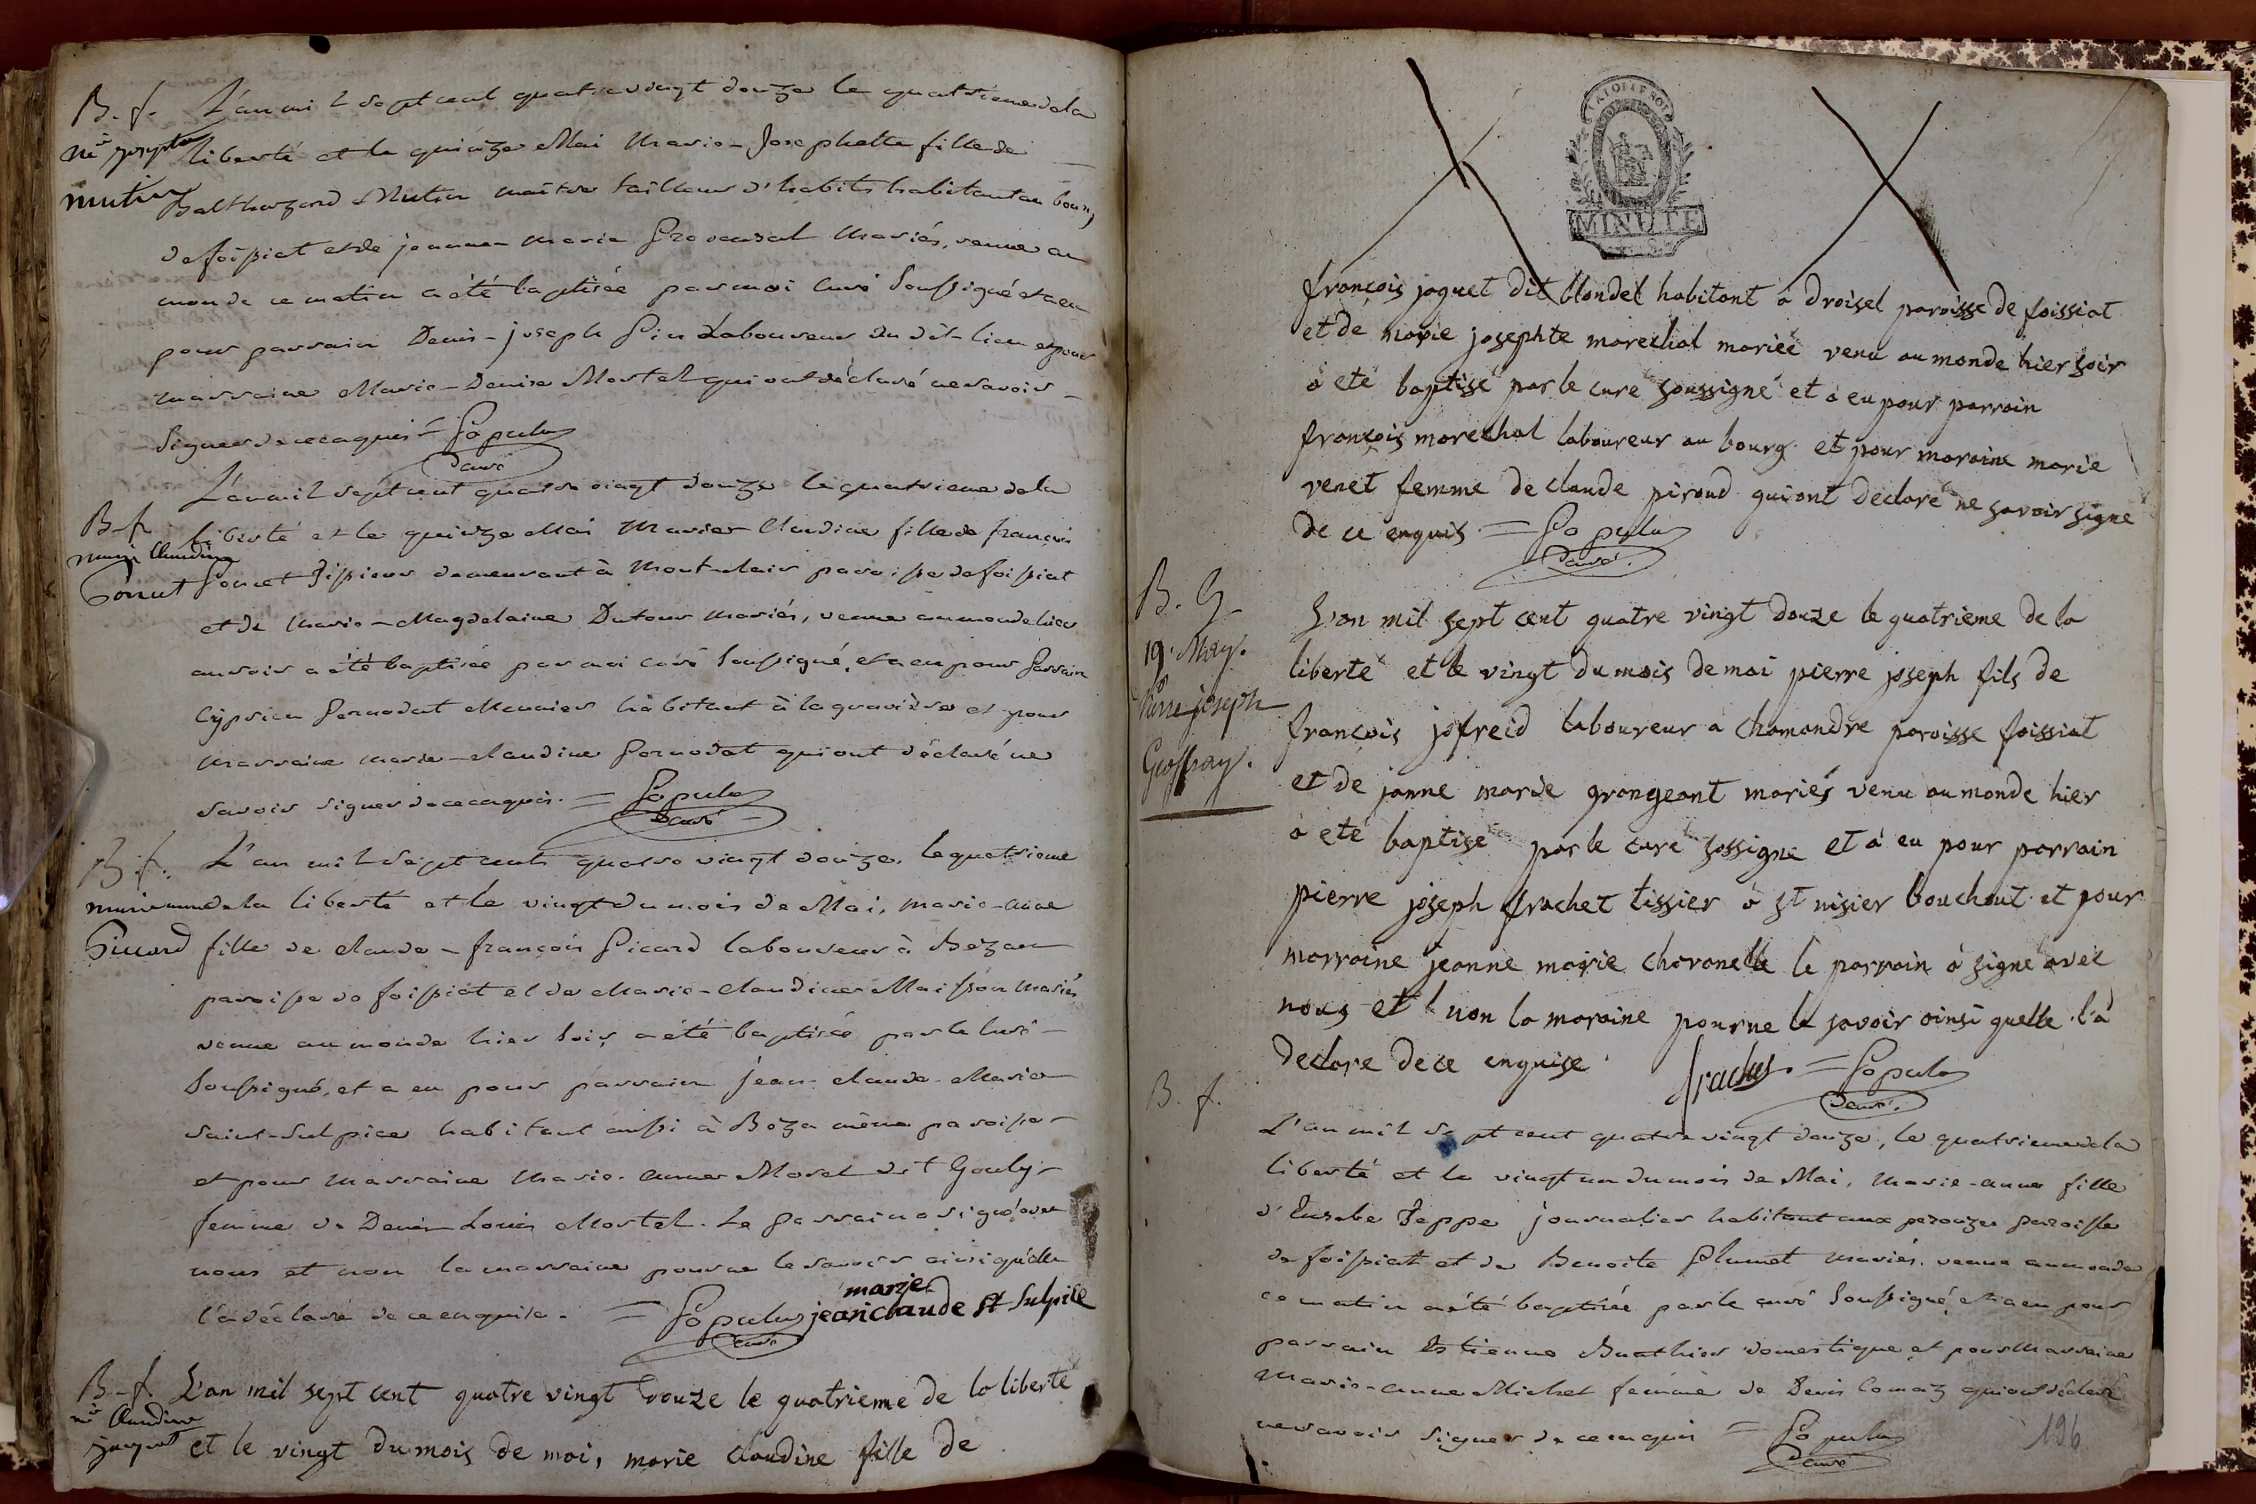 B. f. L'an mil sept cent quatre vingt douze le quatrieme de la
mie josephte liberté et le quinze Mai Marie-Josephette fille de
mutin Balthazard Mutin maitre tailleur d'habits habitant au bourg
de foissiat et de jeanne marie Provensal Mariés, venue au
monde ce matin a été baptisée par moi curé Soussigné et a eu
pour parrain Denis-joseph Pin Laboureur du dit-lieu et pour
marraine Marie-Denise Mortel qui ont déclaré ne savoir
signer de ce enquis = Populus
curé
L'an mil sept cent quatre vingt douze le quatrieme de la
B-f. liberté et le quinze Mai Marie Claudine fille de françois
marie Claudine
Poncet Poncet Tissier demeurant à Montclair paroisse de foissiat
et de Marie-Magdelaine Dutour Mariés, venue au monde hier
au soir a été baptisée par moi curé soussigné, et a eu pour Parrain
Cyprien Pernodat Meunier habitant à la gravière et pour
Marraine marie-claudine Pernodat qui ont déclaré ne
savoir signer de ce enquis. = Populus
curé
B. f. L'an mil sept cent quatre vingt douze, le quatrieme
marie anne de la liberté et le vingt du mois de Mai, marie-anne
Piccard fille de claude-françois Picard laboureur à Bezan
paroisse de foissiat et de Marie-Claudine Maisson Mariés
venue au monde hier soir, a été baptisée par le curé
soussigné, et a eu pour parrain jean claude Marie
saint-sulpice habitant aussi à Béza même paroisse
et pour marraine Marie-anne Morel dit Gouly
femme de Denis Louis Mortel. Le Parrain a signé avec
nous et non la marraine pour ne le savoir ainsi qu'elle
l'a déclaré de ce enquise. = Populus marie jean claude St Sulpice
curé
B-f. L'an mil sept cent quatre vingt douze le quatrieme de la liberté
mie Claudine
jacquet et le vingt du mois de mai, marie claudine fille de
LA LOI ET LE ROI
MINUTE
françois jaquet dit blondel habitant a droisel paroisse de foissiat
et de marie josephte marechal mariée venu au monde hier soir
a eté baptisé par le curé soussigné et a eu pour parrain
françois marechal laboureur au bourg et pour maraine marie
venet femme de claude piroud qui ont declaré ne savoir signé
de ce enquis = Populus
curé.
B. G L'an mil sept cent quatre vingt douze le quatrieme de la
19. May. liberté et le vingt du mois de mai pierre joseph fils de
Pierre joseph françois jofreid laboureur a chamandre paroisse foissiat
Geoffray. et de janne marie grangeant mariés venu au monde hier
a eté baptisé par le curé sossigné et a eu pour parrain
pierre joseph frachet tissier a st nisier bouchout et pour
marraine jeanne marie charonelle le parrain a signé avec
nous et non la maraine pour ne le savoir ainsi quelle l'a
declare de ce enquise Frachet = Populus
curé.
B. f. L'an mil sept cent quatre vingt douze, le quatrieme de la
liberté et le vingt un du mois de Mai, Marie-anne fille
d'Eusebe Teppe journalier habitant aux perouzes paroisse
de foissiat et de Benoite Plumet mariés. venue au monde
ce matin a été baptisée par le curé soussigné, et a eu pour
parrain Etienne Buathier domestique et pour Marraine
Marie-anne Michel femme de Denis Comaz qui ont déclaré
ne savoir signer de ce enquis = Populus
curé
196